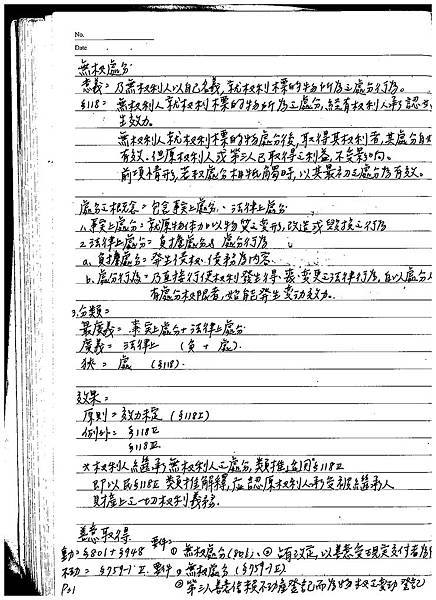 No.
Date
無权處分
意義=乃無权利人以自己名義,就权利標的物所為之處分行為。
§118= 無权利人就权利標的物所為之處分,經有权利人承認
生效力。
無权利人就权利標的物處分後,取得其权利者,其處分自始
有效.但原权利人或第三人已取得之利益,不受影响。
前項情形,若权處分相牴觸時,以其最初之處分為有效。
處分之概念=包含事实上處分、法律上處分
1.事实上處分=就原物体加以物質之变形,改造或毀損之行為
2.法律上處分=負擔處分&處分行為
a.負擔處分=發生债权、债務內容.
b.處分行為=乃直接行使权利發生得、喪、变更之法律行為,
有處分权限者,始能發生变动效力。
3.分類=
最廣義=事实上處分+法律上處分
廣義=法律上 (負+處).
狹=處 (§118).
效果=
原則=效力未定 (§118I)
例外= §118II
§118III
*权利人繼承無权利人之處分,類推適用§118II
即以民§118II類推解釋,应認原权利人承受被繼承人
財產上之一切权利義務.
善意取得
动=§801+§948 要件= ①無权處分(801)、②占有改定,以善意受現定交付者為
不动=§759-1II.要件①無权處分(§759-1II)
②第三人善意信賴不动產登記而為物权变动登記
P01